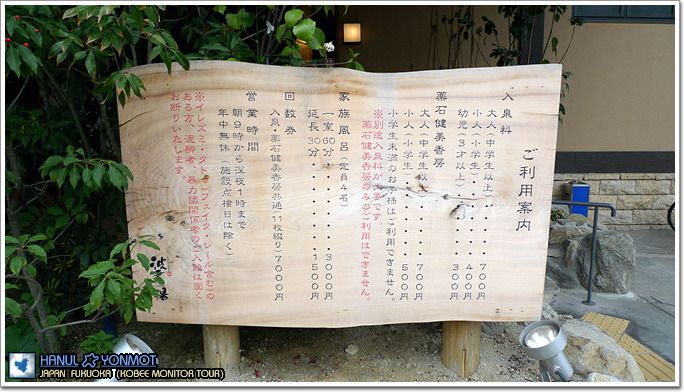 ご利用案内
入泉料
大人(中学生以上)・・・・700円
小人(小学生)・・・・・400円
幼児(3才以上)・・・・300円
薬石健美香房
大人(中学生以上)・・・・700円
小人(小学生)・・・・・500円
小学生未満のお子様はご利用できません。
※別途入泉料が必要です。
薬石健美香房のみのご利用はできません。
家族風呂(定員4名)
一室60分・・・・・・3000円
延長30分・・・・・・1500円
回数券
入泉・薬石健美香房共通(11枚綴り)7000円
営業時間
朝9時から深夜1時まで
年中無休(施設点検日は除く)
※イレズミ・タトゥ(フェイク・シール含む)の
ある方、泥酔者、暴力団関係者のご入館は固く
お断りいたします。
HANUL ☆ YONMOT
JAPAN FUKUOKA (KOBEE MONITOR TOUR)